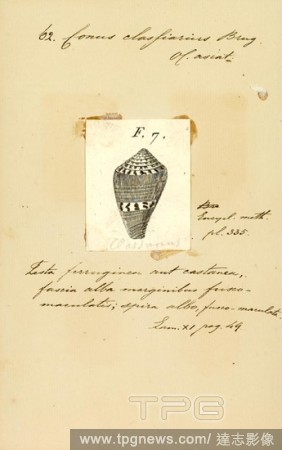 62. Conus classiarius Brug
O. asiat.
F. 7.
Encycl. meth.
pl. 335.
Testa ferruginea aut castanea,
fascia alba marginibus fusco-
maculatis; spira alba, fusco-maculata.
Lam. XI pag. 49
TPG
www.tpgnews.com/達志影像